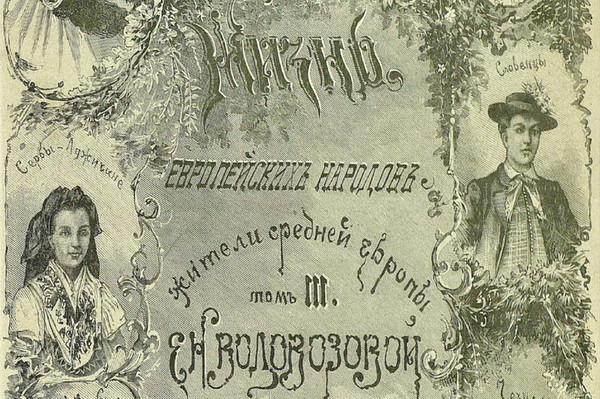 Жизнь.
Словенцы
Сербы-Лужичане
ЕВРОПЕЙСКИХЪ НАРОДОВЪ
жители средней Европы
томъ III.
Е Н ВОДОВОЗОВОЙ